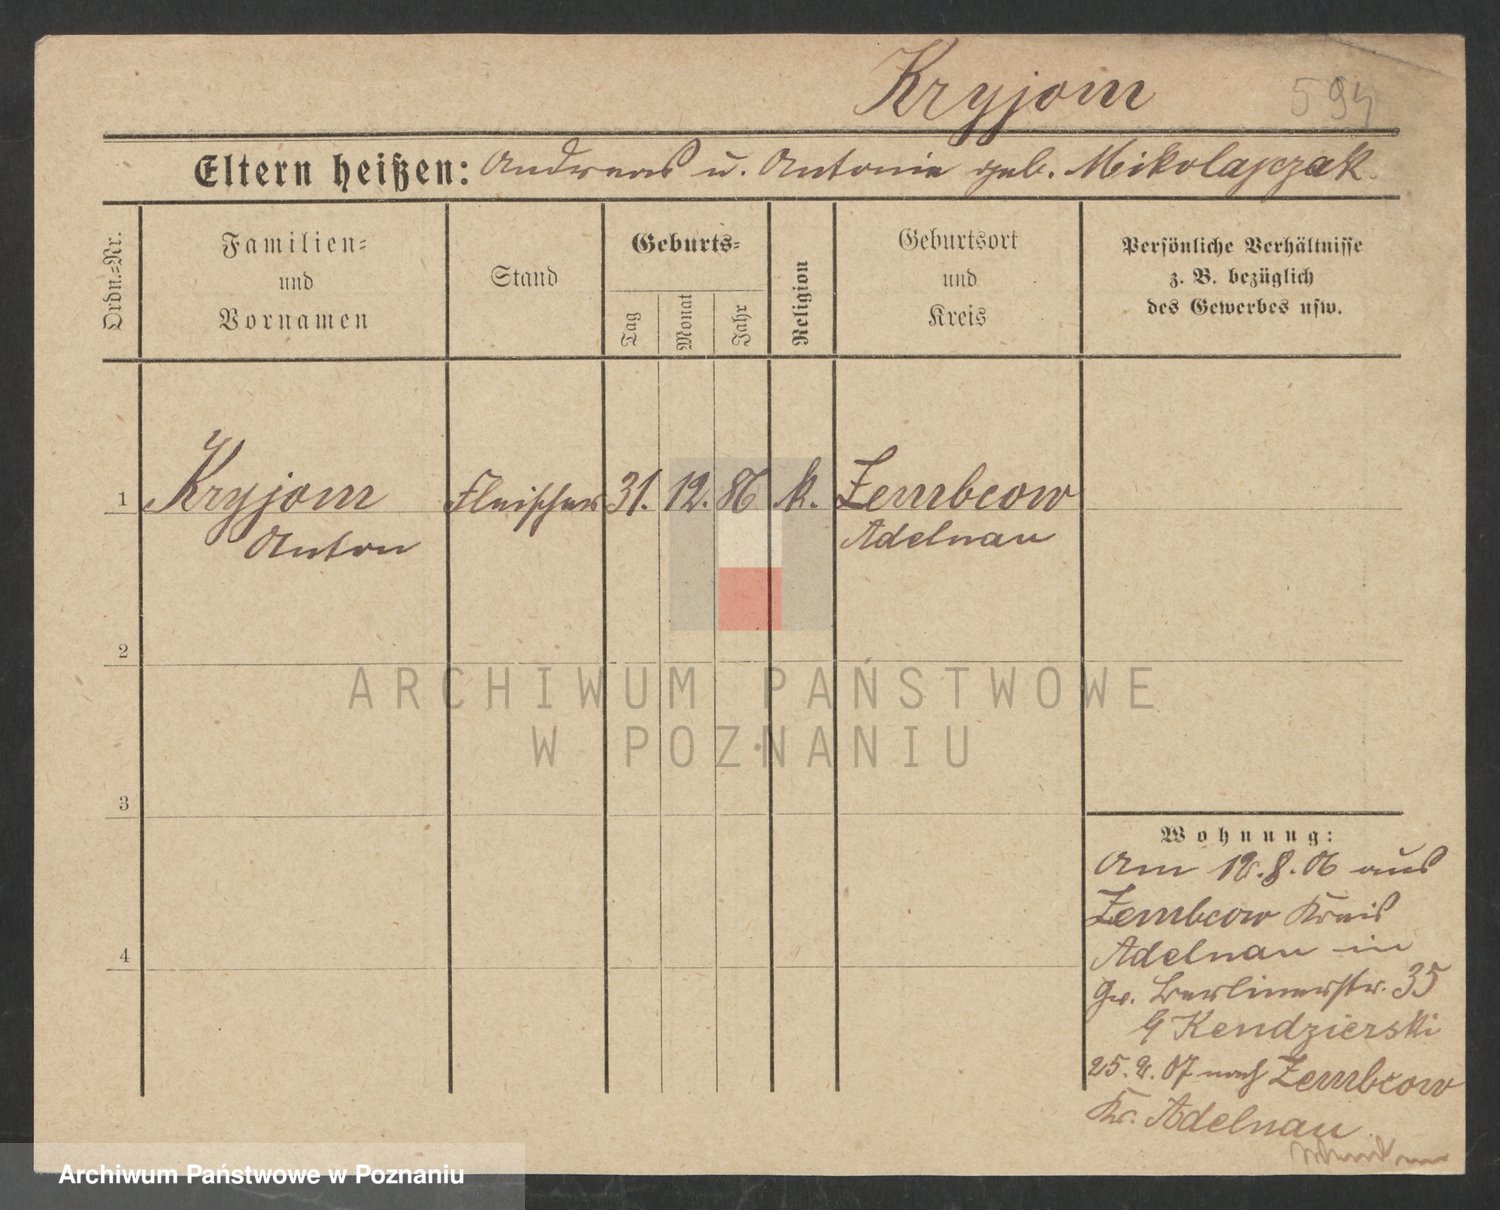 Kryjom 594
Eltern heißen: Andreas u. Antonie geb. Mikolajczak
Ordn.=Nr.
Familien=
und
Vornamen
Stand
Geburts=
Tag
Monat
Jahr
Religion
Geburtsort
und
Kreis
Persönliche Verhältnisse
z. B. bezüglich
des Gewerbes usw.
1 Kryjom Fleischer 31. 12. 86 k. Zembcow
Anton Adelnau
2
ARCHIWUM PAŃSTWOWE
W POZNANIU
3
Wohnung:
Am 18.8.06 aus
Zembcow Kreis
4
Adelnau in
Gr. Berlinerstr. 35
b/ Kendzierski
25.2.07 nach Zembcow
Kr. Adelnau
Archiwum Państwowe w Poznaniu